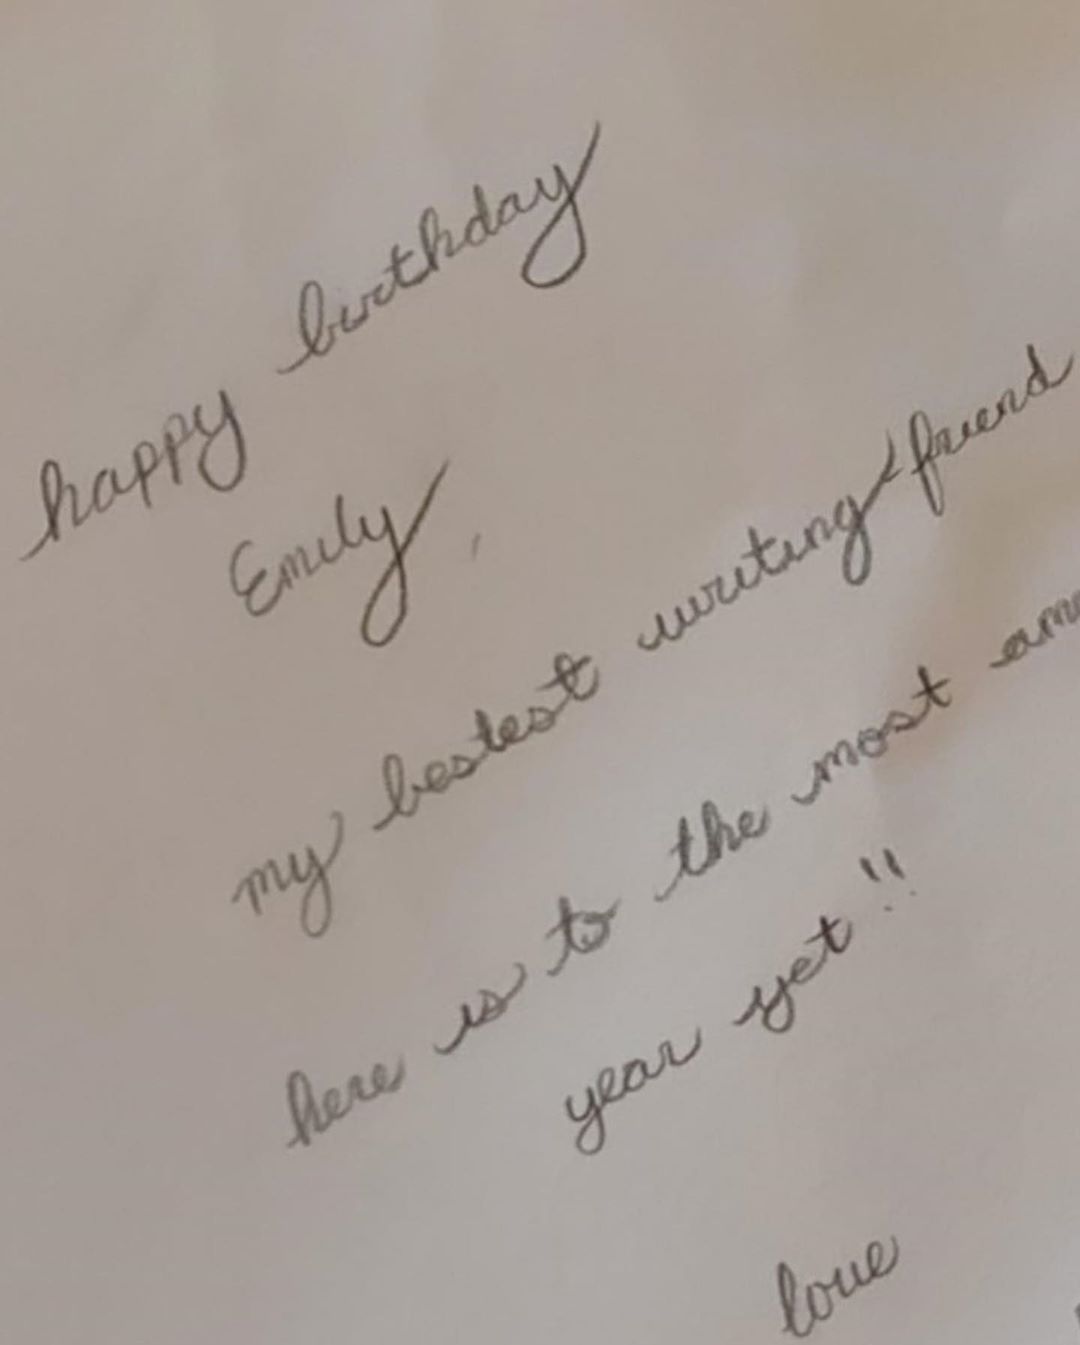 happy birthday
Emily,
my bestest writing friend
here is to the most
year yet!!
love